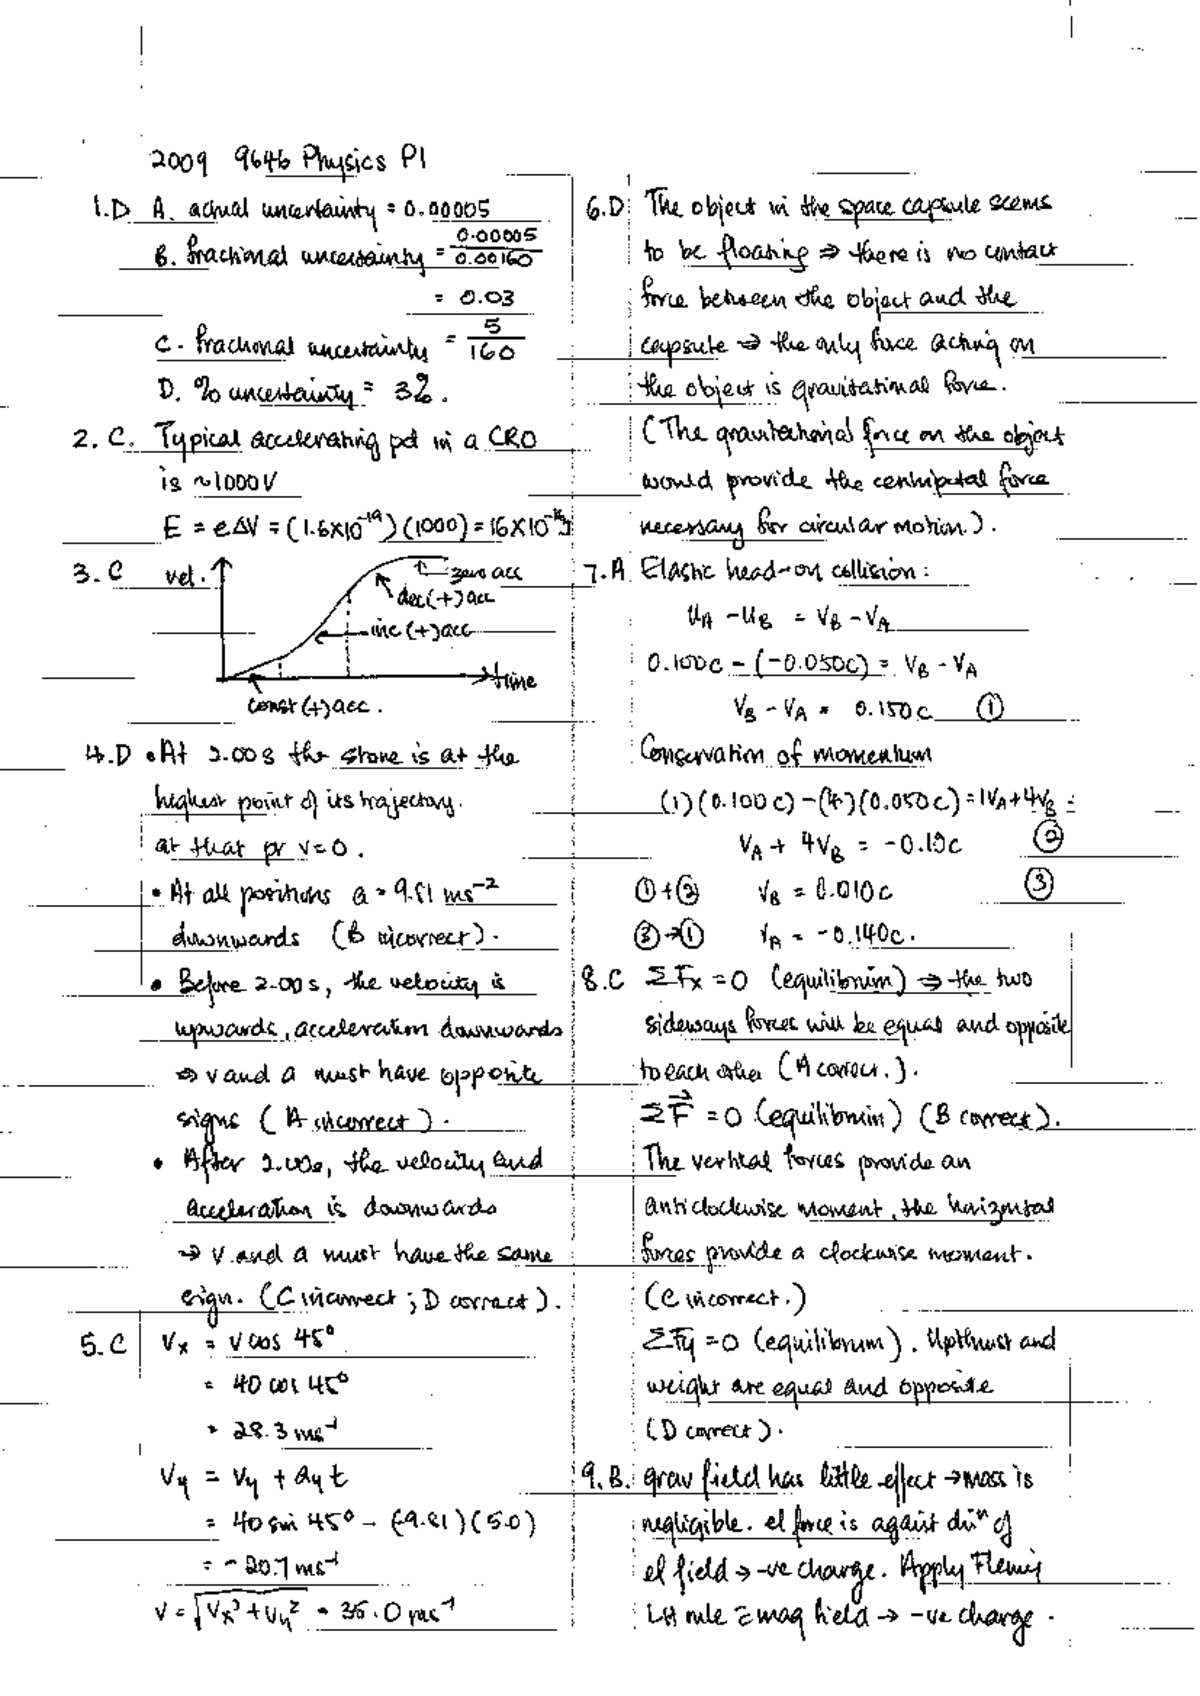 2009 9646 Physics P1
1.D A. actual uncertainty = 0.00005
B. fractional uncertainty = 0.00005/0.00160
= 0.03
C. fractional uncertainty = 5/160
D. % uncertainty = 3%.
2. C. Typical accelerating pd in a CRO
is ~1000V
E = eΔV = (1.6×10⁻¹⁹)(1000) = 16×10⁻¹⁶J
3. C vel.
zero acc
dec(+)acc
inc(+)acc
time
const(+)acc.
4.D • At 2.00s the stone is at the
highest point of its trajectory.
at that pt v=0.
• At all positions a = 9.81 ms⁻²
downwards (B incorrect).
• Before 2.00s, the velocity is
upwards, acceleration downwards
⇒ v and a must have opposite
signs (A incorrect).
• After 2.00s, the velocity and
acceleration is downwards
→ v and a must have the same
sign. (C incorrect; D correct).
5.C Vx = V cos 45°
= 40 cos 45°
= 28.3 ms⁻¹
Vy = Vy + ay t
= 40 sin 45° - (-9.81)(5.0)
= -20.7 ms⁻¹
V = √(Vx² + Vy²) = 35.0 ms⁻¹
6.D The object in the space capsule seems
to be floating ⇒ there is no contact
force between the object and the
capsule ⇒ the only force acting on
the object is gravitational force.
(The gravitational force on the object
would provide the centripetal force
necessary for circular motion.).
7.A Elastic head-on collision:
uA - uB = VB - VA
0.100c - (-0.050c) = VB - VA
VB - VA = 0.150c ①
Conservation of momentum
(1)(0.100c) - (4)(0.050c) = 1VA + 4VB
VA + 4VB = -0.10c ②
①+② VB = 0.010c ③
③→① VA = -0.140c.
8.C ΣFx = 0 (equilibrium) ⇒ the two
sideways forces will be equal and opposite
to each other (A correct.).
ΣF⃗ = 0 (equilibrium) (B correct).
The vertical forces provide an
anticlockwise moment, the horizontal
forces provide a clockwise moment.
(C incorrect.)
ΣFy = 0 (equilibrium). Upthrust and
weight are equal and opposite
(D correct).
9.B. grav field has little effect → mass is
negligible. el force is against dirⁿ of
el field → -ve charge. Apply Flemig
LH rule mag field → -ve charge.